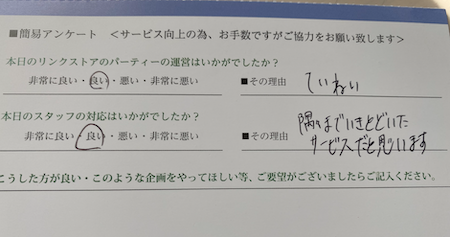 ■簡易アンケート <サービス向上の為、お手数ですがご協力をお願い致します>
本日のリンクストアのパーティーの運営はいかがでしたか?
非常に良い・良い・悪い・非常に悪い ■その理由 ていねい
本日のスタッフの対応はいかがでしたか?
非常に良い・良い・悪い・非常に悪い ■その理由 隅々までいきとどいた
サービスだと思います
こうした方が良い・このような企画をやってほしい等、ご要望がございましたらご記入ください。